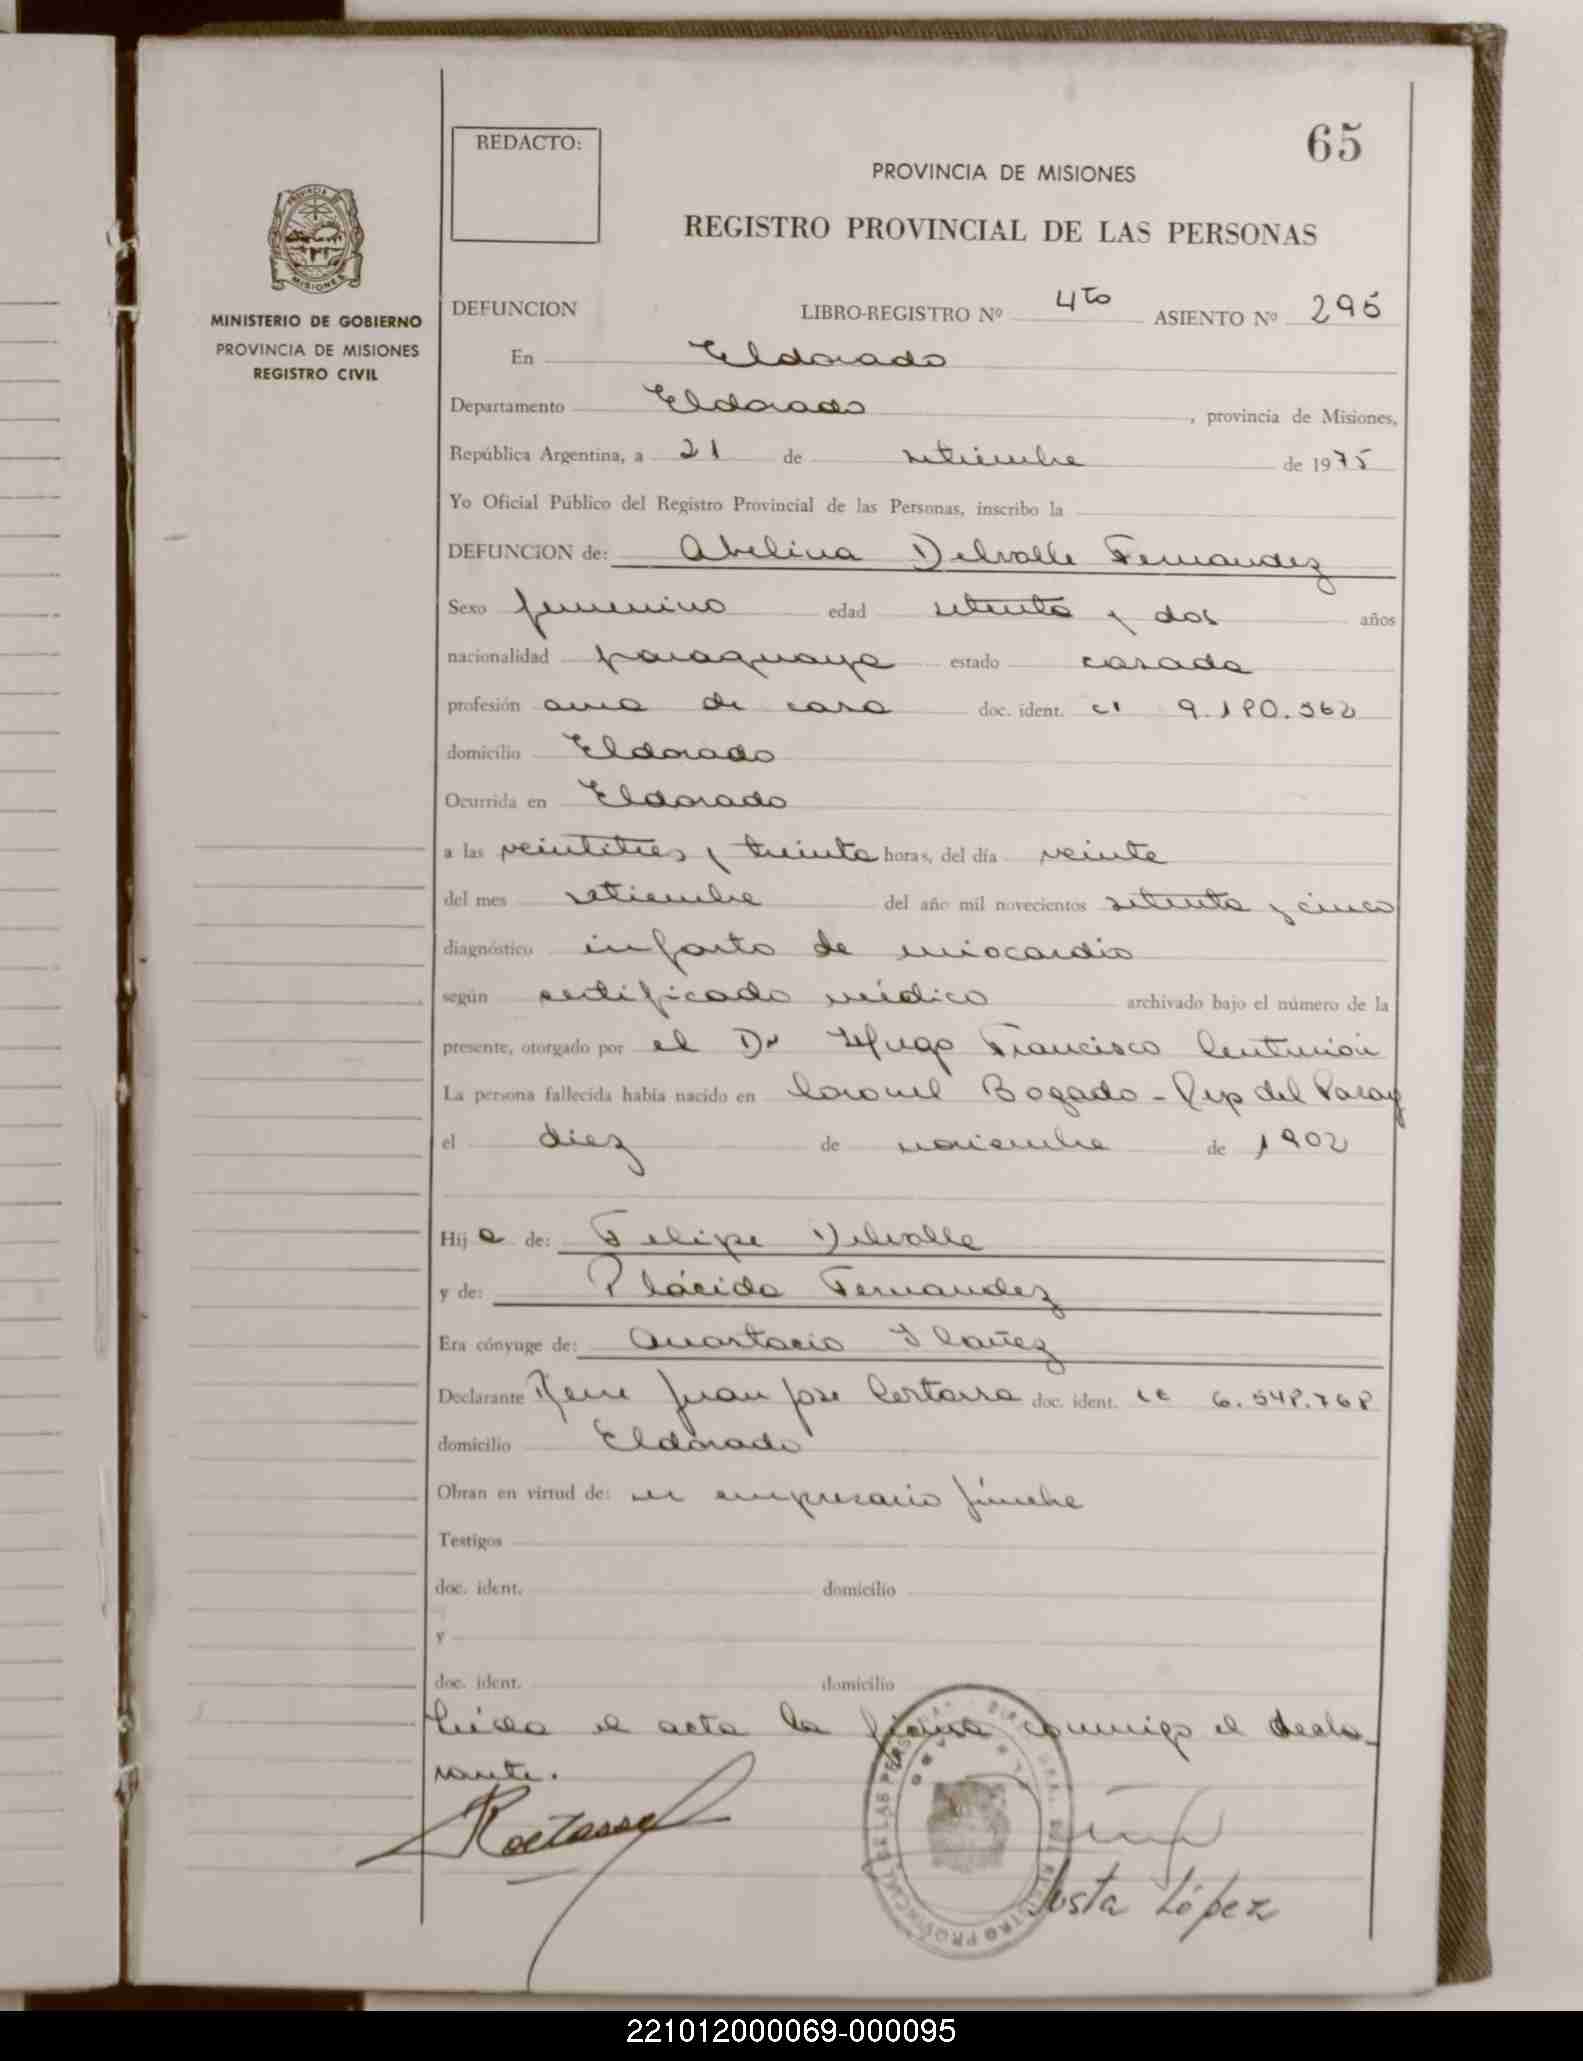 65
REDACTO:
PROVINCIA DE MISIONES
REGISTRO PROVINCIAL DE LAS PERSONAS
MINISTERIO DE GOBIERNO
PROVINCIA DE MISIONES
REGISTRO CIVIL
DEFUNCION LIBRO-REGISTRO Nº 4to ASIENTO Nº 295
En Eldorado
Departamento Eldorado, provincia de Misiones,
República Argentina, a 21 de setiembre de 1975
Yo Oficial Público del Registro Provincial de las Personas, inscribo la
DEFUNCION de: Abelina Delvalle Fernandez
Sexo femenino edad setenta y dos años
nacionalidad paraguaya estado casada
profesión ama de casa doc. ident. ci 9.180.562
domicilio Eldorado
Ocurrida en Eldorado
a las veintitres y treinta horas, del día veinte
del mes setiembre del año mil novecientos setenta y cinco
diagnóstico infarto de miocardio
según certificado médico archivado bajo el número de la
presente, otorgado por el Dr Hugo Francisco Centurión
La persona fallecida había nacido en Coronel Bogado - Rep del Paray
el diez de noviembre de 1902
Hija de: Felipe Delvalle
y de: Plácida Fernandez
Era cónyuge de: Anastacio Ibañez
Declarante Rene Juan Jose doc. ident. 6.548.768
domicilio Eldorado
Obran en virtud de: ser empresario fúnebre
Testigos
doc. ident. domicilio
y
doc. ident. domicilio
Leída el acta la firma conmigo el decla-
rante.
Justa López
221012000069-000095